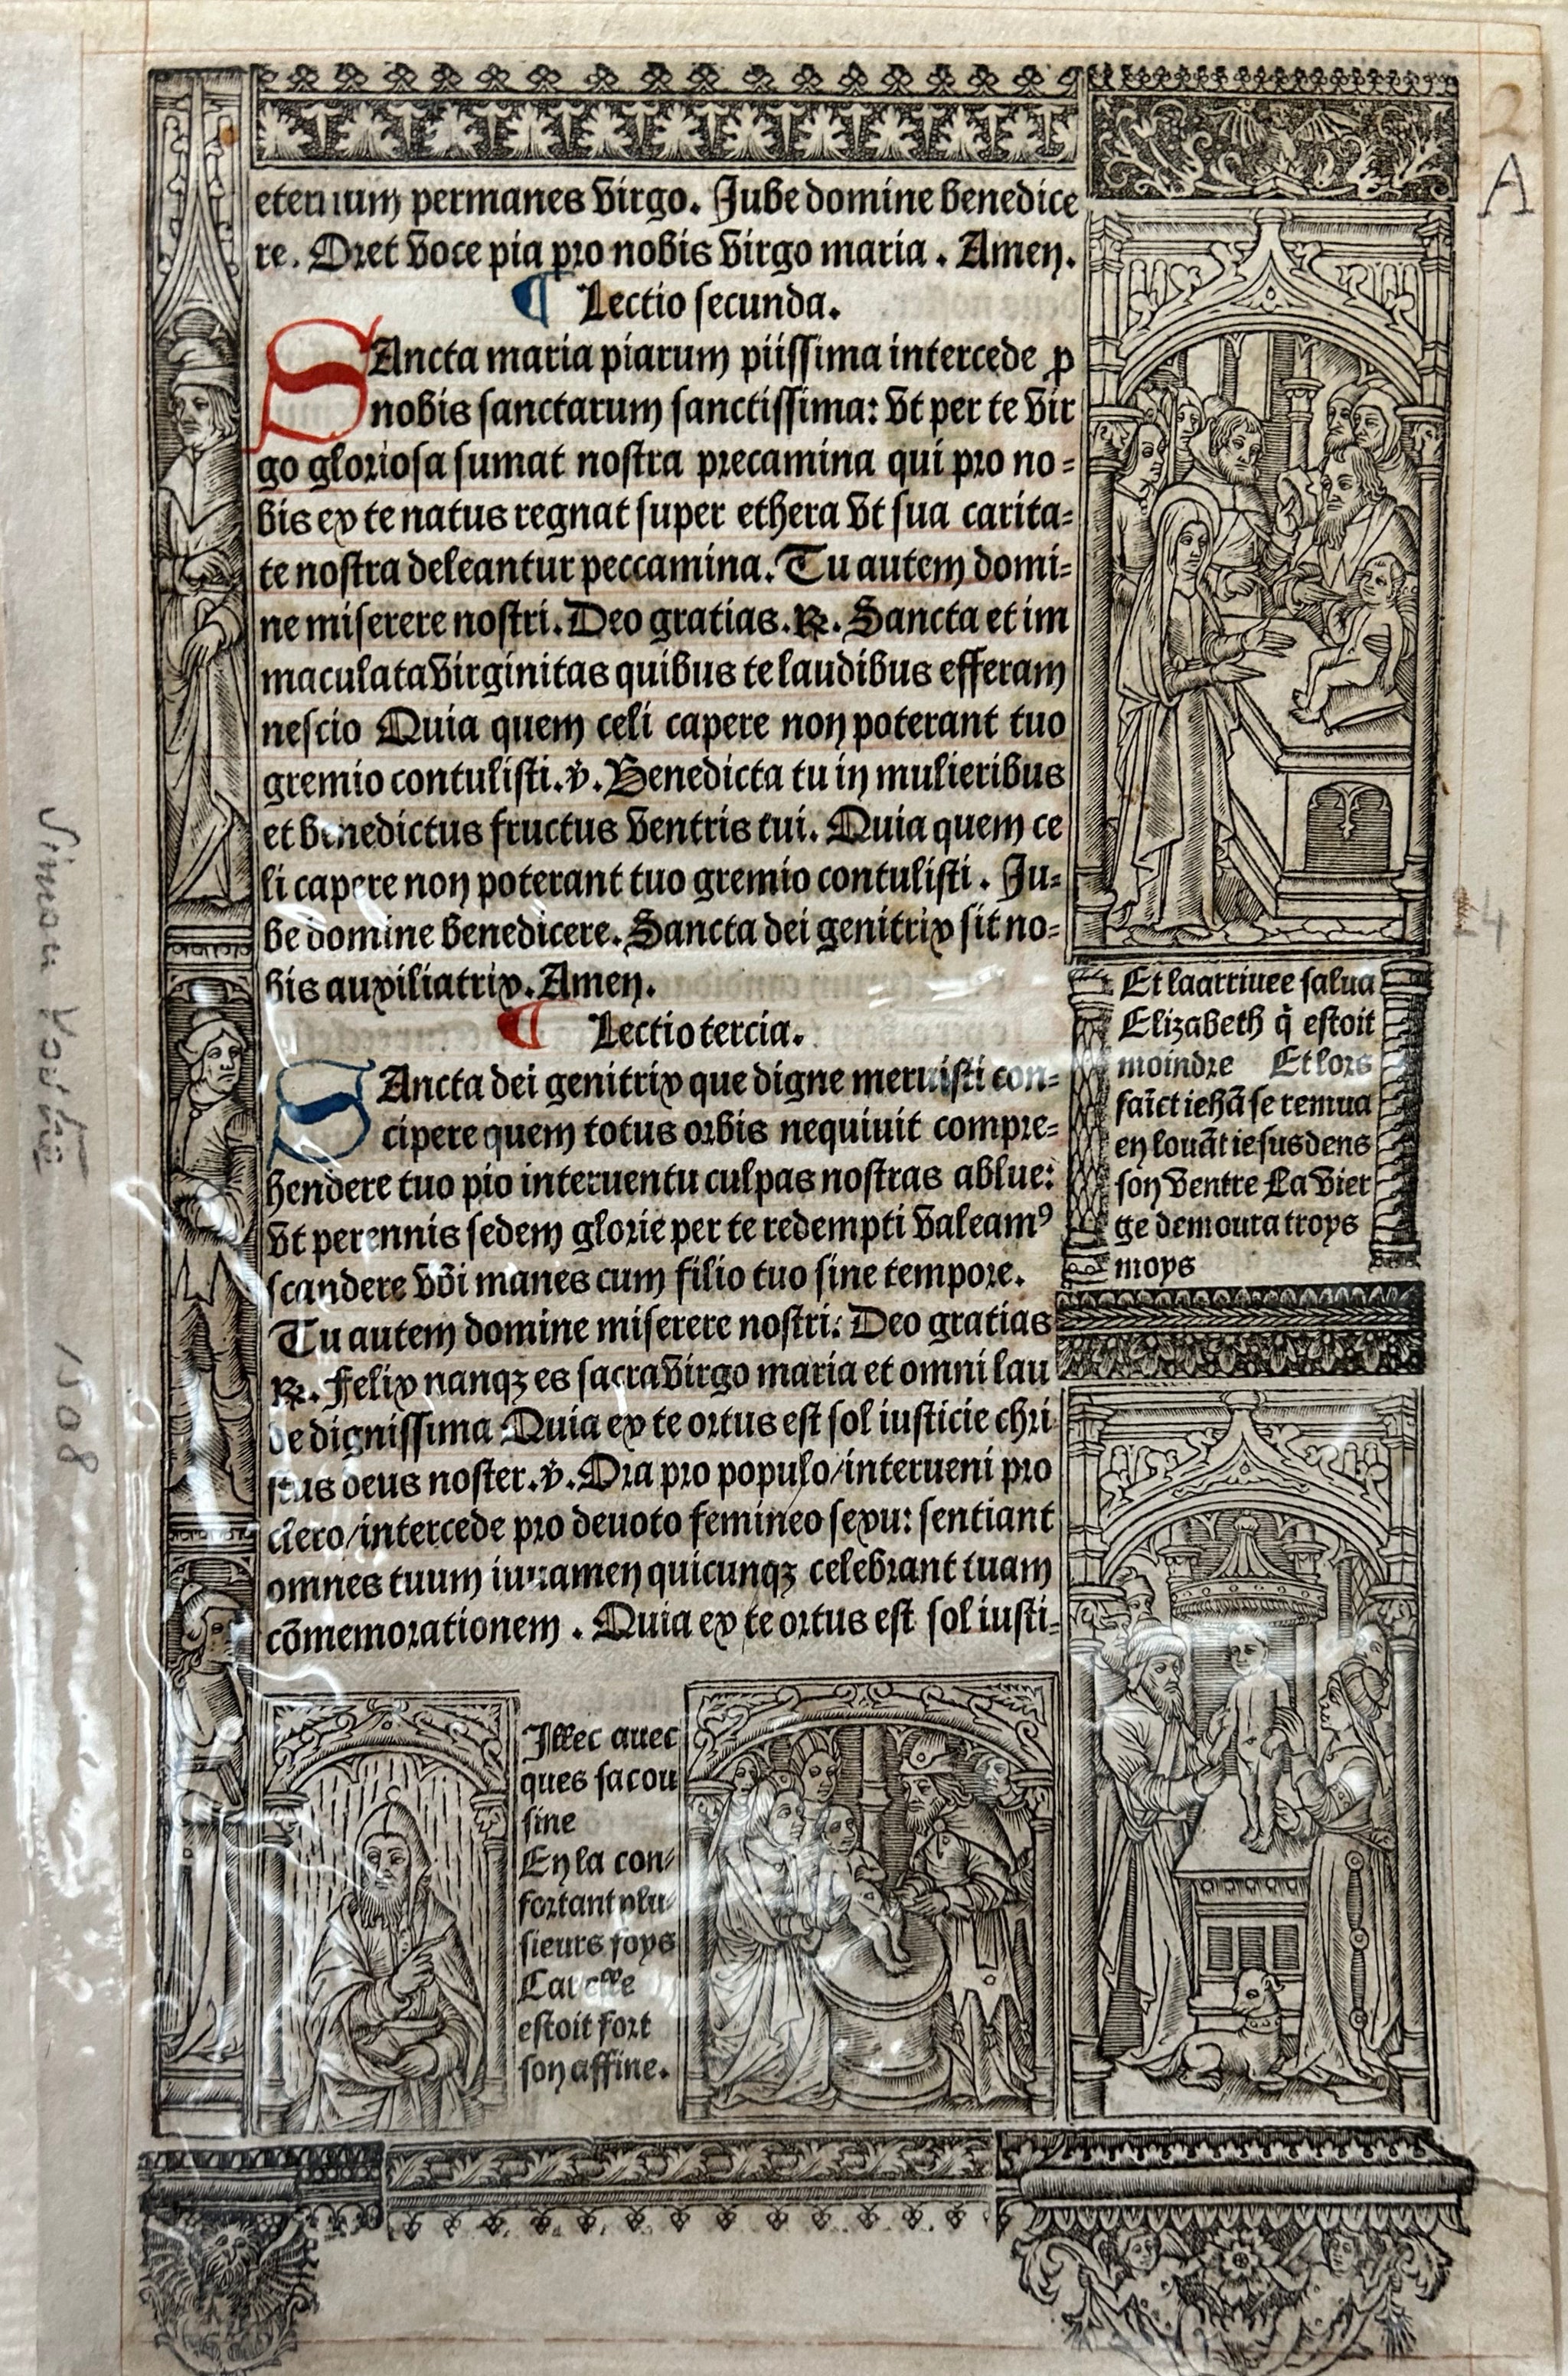 2
A
eternum permanes virgo. Jube domine benedice
re. Oret voce pia pro nobis virgo maria. Amen.
¶ Lectio secunda.
SAncta maria piarum piissima intercede ꝓ
nobis sanctarum sanctissima: vt per te vir
go gloriosa sumat nostra precamina qui pro no=
bis ex te natus regnat super ethera vt sua carita=
te nostra deleantur peccamina. Tu autem domi=
ne miserere nostri. Deo gratias. ℟. Sancta et im
maculata virginitas quibus te laudibus efferam
nescio Quia quem celi capere non poterant tuo
gremio contulisti. ℣. Benedicta tu in mulieribus
et benedictus fructus ventris tui. Quia quem ce
li capere non poterant tuo gremio contulisti. Ju=
be domine benedicere. Sancta dei genitrix sit no=
bis auxiliatrix. Amen.
¶ Lectio tercia.
SAncta dei genitrix que digne meruisti con=
cipere quem totus orbis nequiuit compre=
hendere tuo pio interuentu culpas nostras ablue:
vt perennis sedem glorie per te redempti valeamꝰ
scandere vbi manes cum filio tuo sine tempore.
Tu autem domine miserere nostri. Deo gratias
℟. Felix nanqꝫ es sacra virgo maria et omni lau
de dignissima Quia ex te ortus est sol iusticie chri
stus deus noster. ℣. Ora pro populo/interueni pro
clero/intercede pro deuoto femineo sexu: sentiant
omnes tuum iuuamen quicunqꝫ celebrant tuam
cōmemorationem. Quia ex te ortus est sol iusti=
Et la arriuee salua
Elizabeth q̄ estoit
moindre Et lors
saīct iehā se remua
en louāt iesus dens
son ventre La vier
ge demoura troys
moys
Illec auec
ques sa cou
sine
En la con=
fortant plu=
sieurs foys
Car elle
estoit fort
son affine.
Simon Vostre
1508